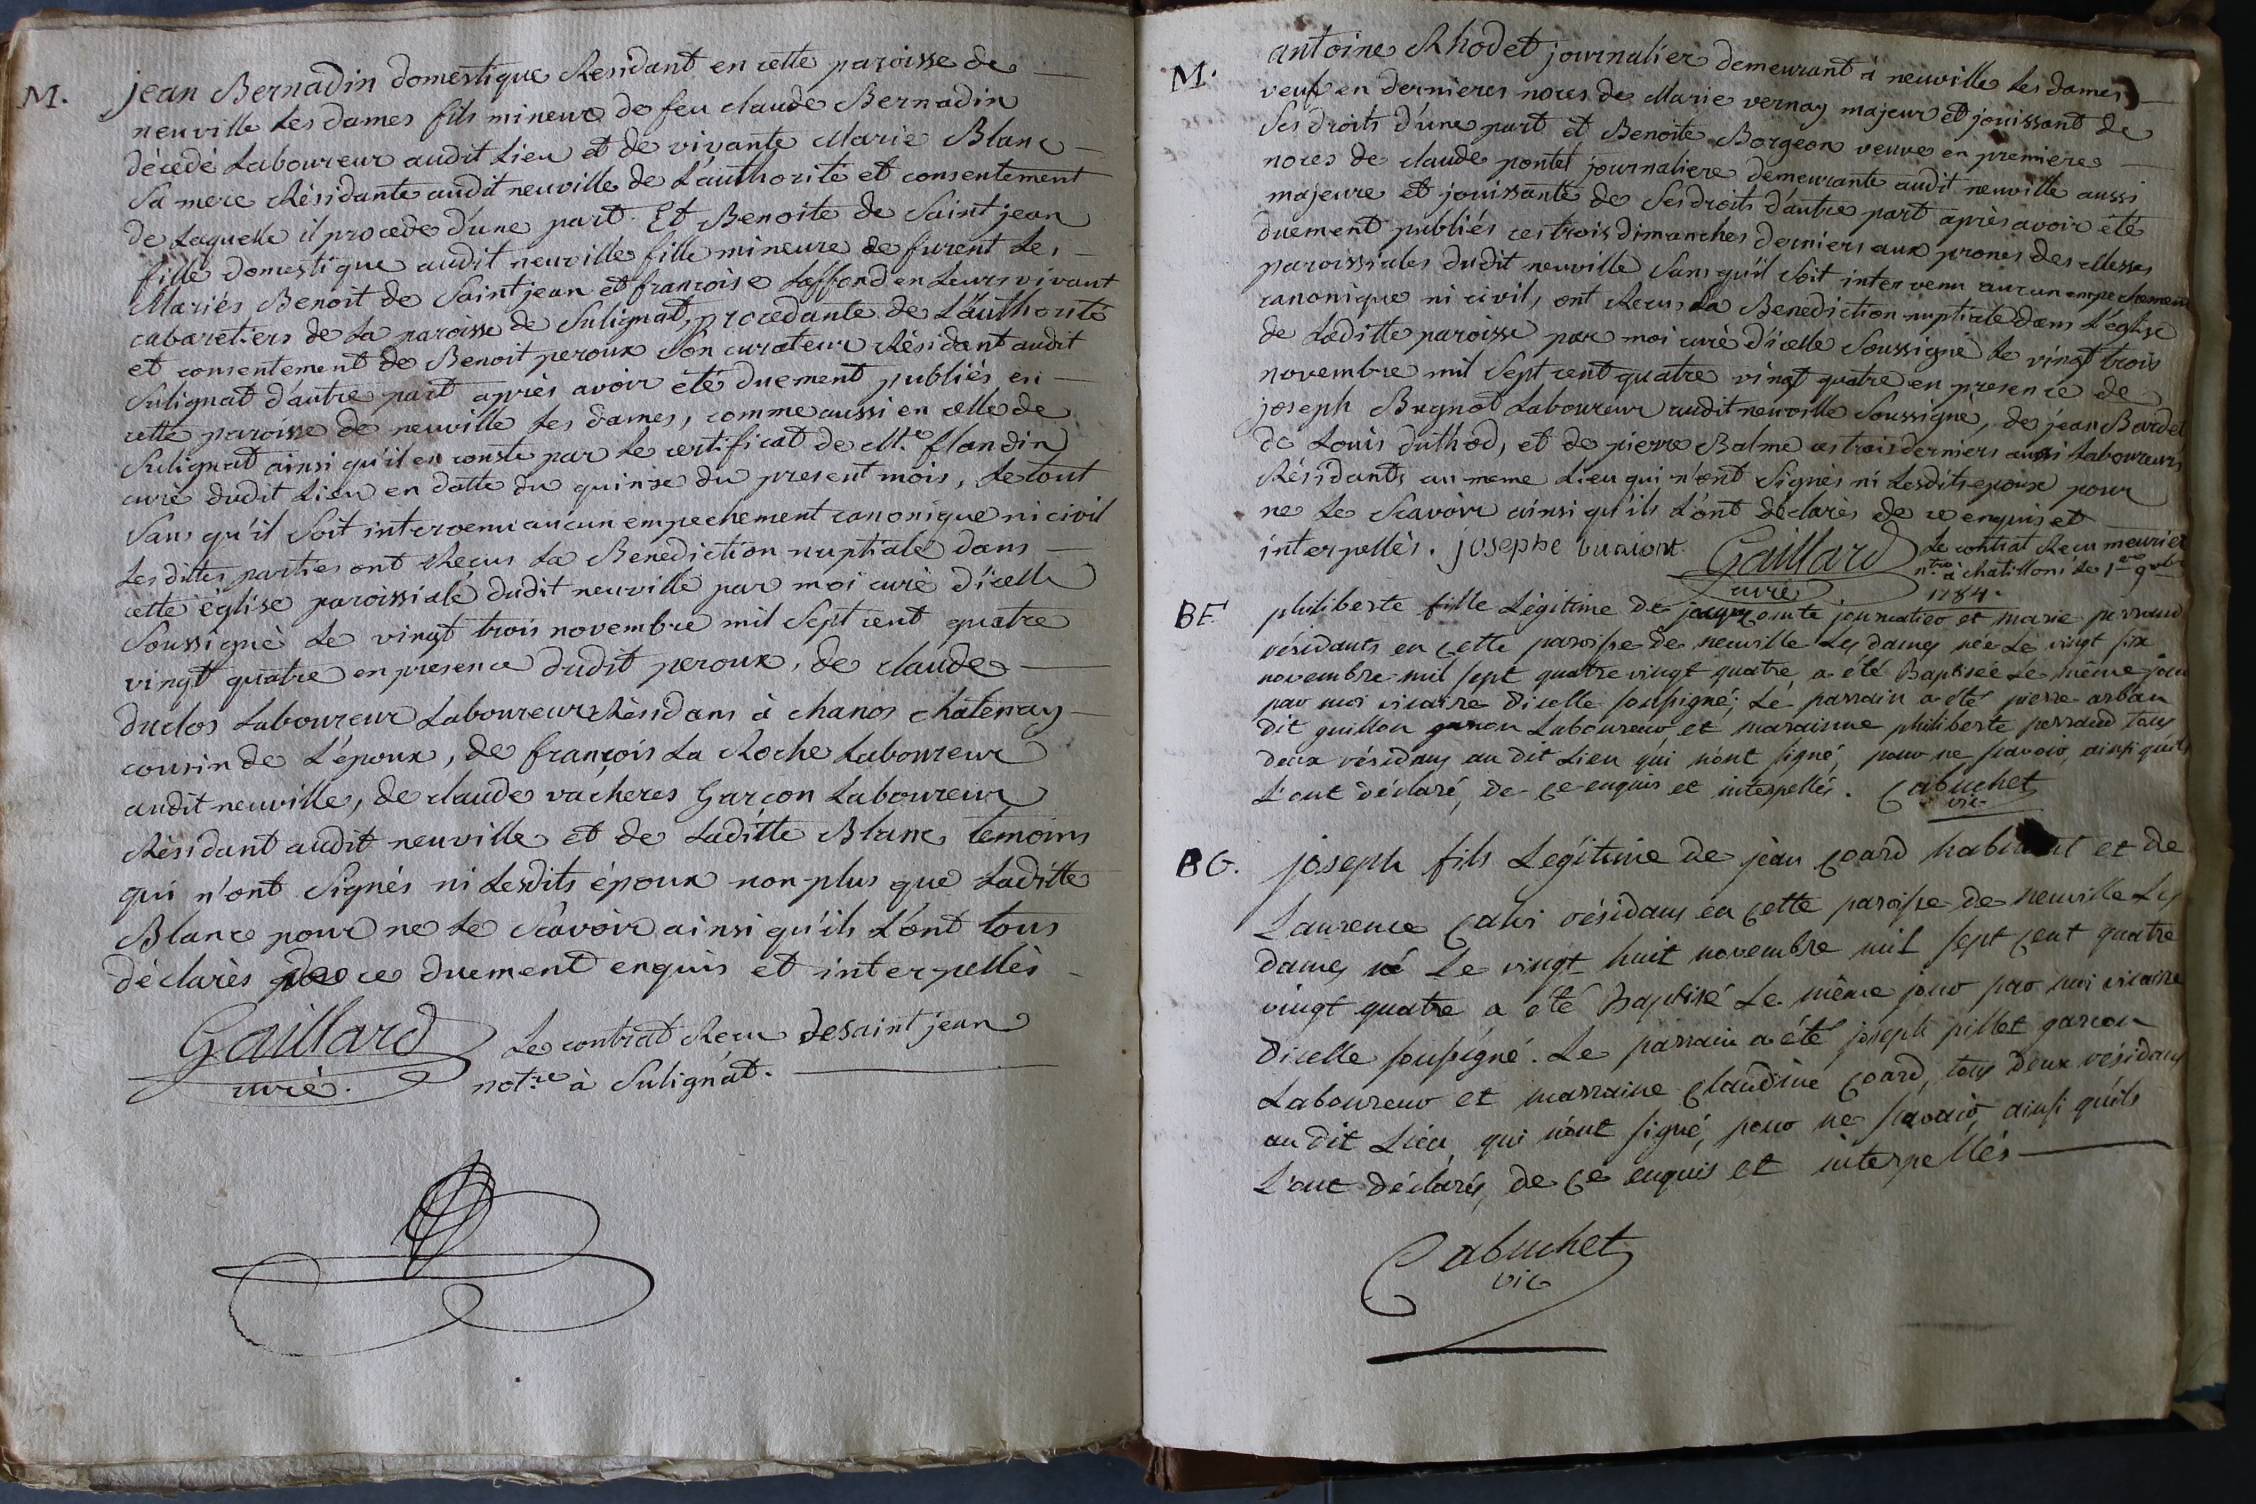 M. jean Bernadin domestique Residant en cette paroisse de
neuville les dames fils mineur de feu claude Bernadin
décedé Laboureur audit Lieu et de vivante Marie Blanc
Sa mere Résidante audit neuville de L'authorité et consentement
de Laquelle il procede d'une part. Et Benoite de Saint jean
fille domestique audit neuville fille mineure de furent Les
Mariés Benoit de Saint jean et françoise Laffond en Leurs vivant
cabaretiers de La paroisse de Sulignat, procedante de L'authorité
et consentement de Benoit peroux Son curateur Résidant audit
Sulignat d'autre part après avoir été duement publiés en
cette paroisse de neuville Les dames, comme aussi en celle de
Sulignat ainsi qu'il en conste par Le certificat de Mr. flandin
curé dudit Lieu en datte du quinze du present mois, Le tout
Sans qu'il Soit intervenu aucun empechement canonique ni civil
Les dittes parties ont Recus La Benediction nuptiale dans
cette église paroissiale dudit neuville par moi curé d'icelle
Soussigné Le vingt trois novembre mil Sept cent quatre
vingt quatre en presence dudit peroux, de claude
duclos Laboureur Laboureur Résidans à chanos chatenay
cousin de L'époux, de françois La Roche Laboureur
audit neuville, de claude vacheres Garçon Laboureur
Résidant audit neuville et de Laditte Blanc temoins
qui n'ont Signés ni Lesdits époux non-plus que Laditte
Blanc pour ne Le Scavoir ainsi qu'ils L'ont tous
déclarés de ce duement enquis et interpellés
Gaillard
curé.
Le contrat Recu deSaint jean
not.re à Sulignat.
M. antoine Rhodet journalier demeurant à neuville Les dames
veuf en dernieres noces de Marie vernay majeur et jouissant de
Ses droits d'une part et Benoite Borgeon veuve en premieres
noces de claude pontet journaliere demeurante audit neuville aussi
majeure et jouissante de Ses droits d'autre part après avoir été
duement publiés ces trois dimanches derniers aux prones des Messes
paroissiales dudit neuville Sans qu'il Soit intervenu aucun empechement
canonique ni civil, ont Recus La Benediction nuptiale dans L'église
de Laditte paroisse par moi curé d'icelle Soussigné Le vingt trois
novembre mil Sept cent quatre vingt quatre en presence de
joseph Bugnot Laboureur audit neuville Soussigné, de jean Bardet
de Louis duthod, et de pierre Balme ces trois derniers aussi Laboureurs
Résidants au meme Lieu qui n'ont Signés ni Lesdits epoux pour
ne Le Scavoir ainsi qu'ils L'ont déclarés de ce enquis et
interpellés. josephe
Gaillard
curé
Le contrat Recu meurier
n.re à chatillon Le 1er 9bre
1784.
BF. philiberte fille Légitime de comte journalier et marie perraud
résidants en cette paroisse de neuville Les dames née Le vingt six
novembre mil sept quatre vingt quatre a été Baptisée Le même jour
par moi vicaire d'icelle soussigné, Le parrain a été pierre arban
dit guillon garçon Laboureur et marainne philiberte perraud tous
deux résidans au dit Lieu qui n'ont signé, pour ne scavoir, ainsi qu'ils
L'ont déclaré, de ce enquis et interpellés. Cabuchet
vic
BG. joseph fils Légitime de jean Coard habitant et de
Laurence Calvi résidans en cette paroisse de neuville Les
dames né Le vingt huit novembre mil sept cent quatre
vingt quatre a été Baptisé Le même jour par moi vicaire
d'icelle soussigné. Le parrain a été joseph pillet garcon
Laboureur et marraine Claudine Coard, tous deux résidans
au dit Lieu, qui n'ont signé, pour ne scavoir, ainsi qu'ils
L'ont déclarés, de ce enquis et interpellés
Cabuchet
vic